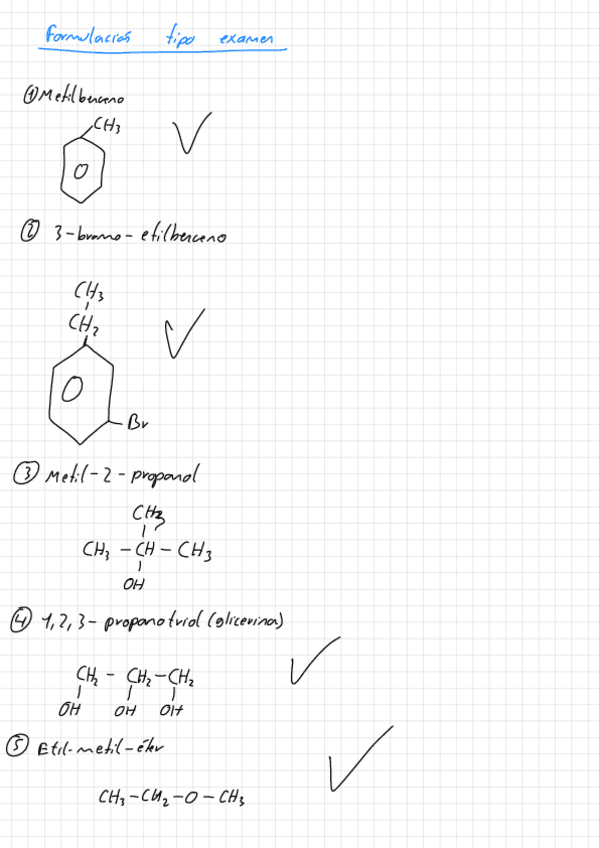 Formulación tipo examen
① Metilbenceno
CH3
② 3-bromo-etilbenceno
CH3
CH2
Br
③ Metil-2-propanol
CH3
CH3 - CH - CH3
OH
④ 1,2,3-propanotriol (glicerina)
CH2 - CH2 - CH2
OH OH OH
⑤ Etil-metil-éter
CH3 - CH2 - O - CH3